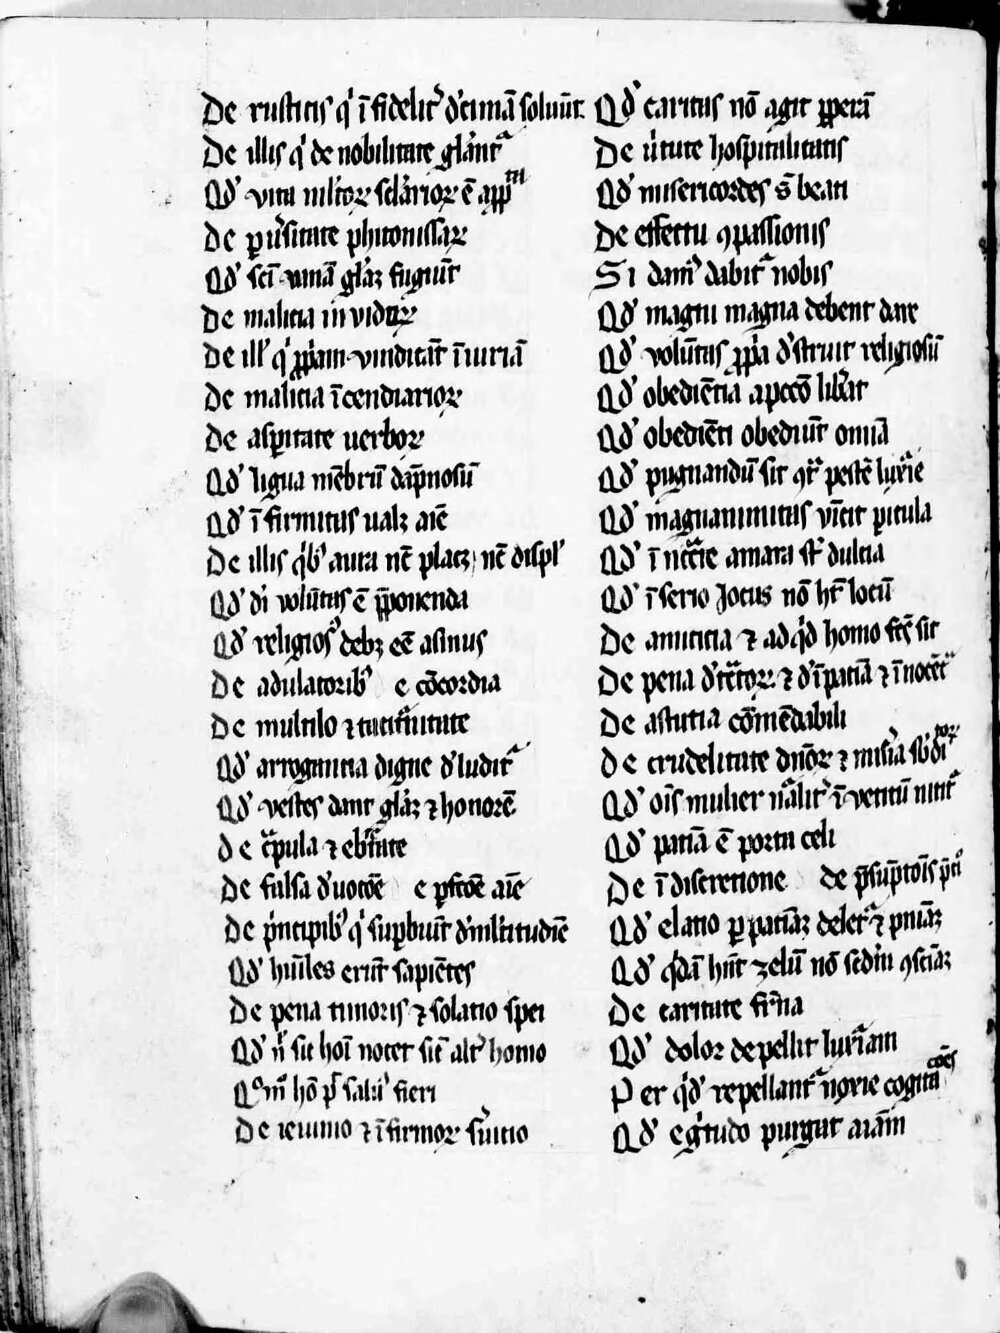 De rusticis q' ī fidelit' d'cimā soluūt
De illis q' de nobilitate glāntᷣ
Qd' vita milicoꝝ sclarioꝝ ē
De ꝑu'sitate phitonissaꝝ
Qd' sci vanā glaꝫ fugiūt
De malicia in vidoꝝ
De ill' q' ꝓpam vindicāt īiuriā
De malicia īcendiarioꝝ
De aspitate uerboꝝ
Qd' ligua mēbrū dāpnosū
Qd' ī firmitas ualꝫ aīe
De illis qb' aura nē placꝫ nē displ'
Qd' di volūtas ē p̄ponenda
Qd' religios' debꝫ eē asinus
De adulatorib' e cōcordia
De multilo ⁊ tacit'nitate
Qd' arrogancia digne d'luditᷣ
Qd' vestes dant glaꝫ ⁊ honorē
De c'pula ⁊ eb'tate
De falsa d'uocōe e ꝑfcōe aīe
De p'ncipib' q' suꝑbiūt d' m'ltitudīe
Qd' hūiles erūt sapiētes
De pena timoris ⁊ solatio spei
Qd' n̄ sic hoī nocet sic̄ alt' homo
Qom̄ hō p̄t saluᷣ fieri
De ieiunio ⁊ īfirmoꝝ s'uicio
Qd' caritas nō agit ꝑperā
De u'tute hospitalitatis
Qd' misericordes s̄ beati
De effectu ꝯpassionis
Si dam' dabitᷣ nobis
Qd' magni magna debent dare
Qd' volūtas ꝓpa d'struit religiosū
Qd' obediētia a peccō lib'at
Qd' obediēti obediūt omīa
Qd' pugnandū sit ꝯt' pestē luxᷣie
Qd' magnanimitas vīcit ꝑicula
Qd' ī nccīe amara st' dulcia
Qd' ī serio Jocus nō ht' locū
De amicitia ⁊ ad qd' homo fcs sit
De pena d'tctoꝝ ⁊ d' īpatiā ⁊ īnocēt'
De astutia cōmēdabili
De crudelitate dnoꝝ ⁊ mis'ia sb'di toꝝ
Qd' oīs mulier nālit' ī vetitū nititᷣ
Qd' patiā ē porta celi
De īdiscretione de p̄sūptōis p̄ci
Qd' elatio ꝑ patiaꝫ deletᷣ ⁊ pniaꝫ
Qd' qdā hn̄t zelū nō scdm ꝯsciaꝫ
De caritate frna
Qd' dolor depellit luxᷣiam
Per qd' repellantᷣ noxie cogitacōes
Qd' eg'tudo purgat aiām